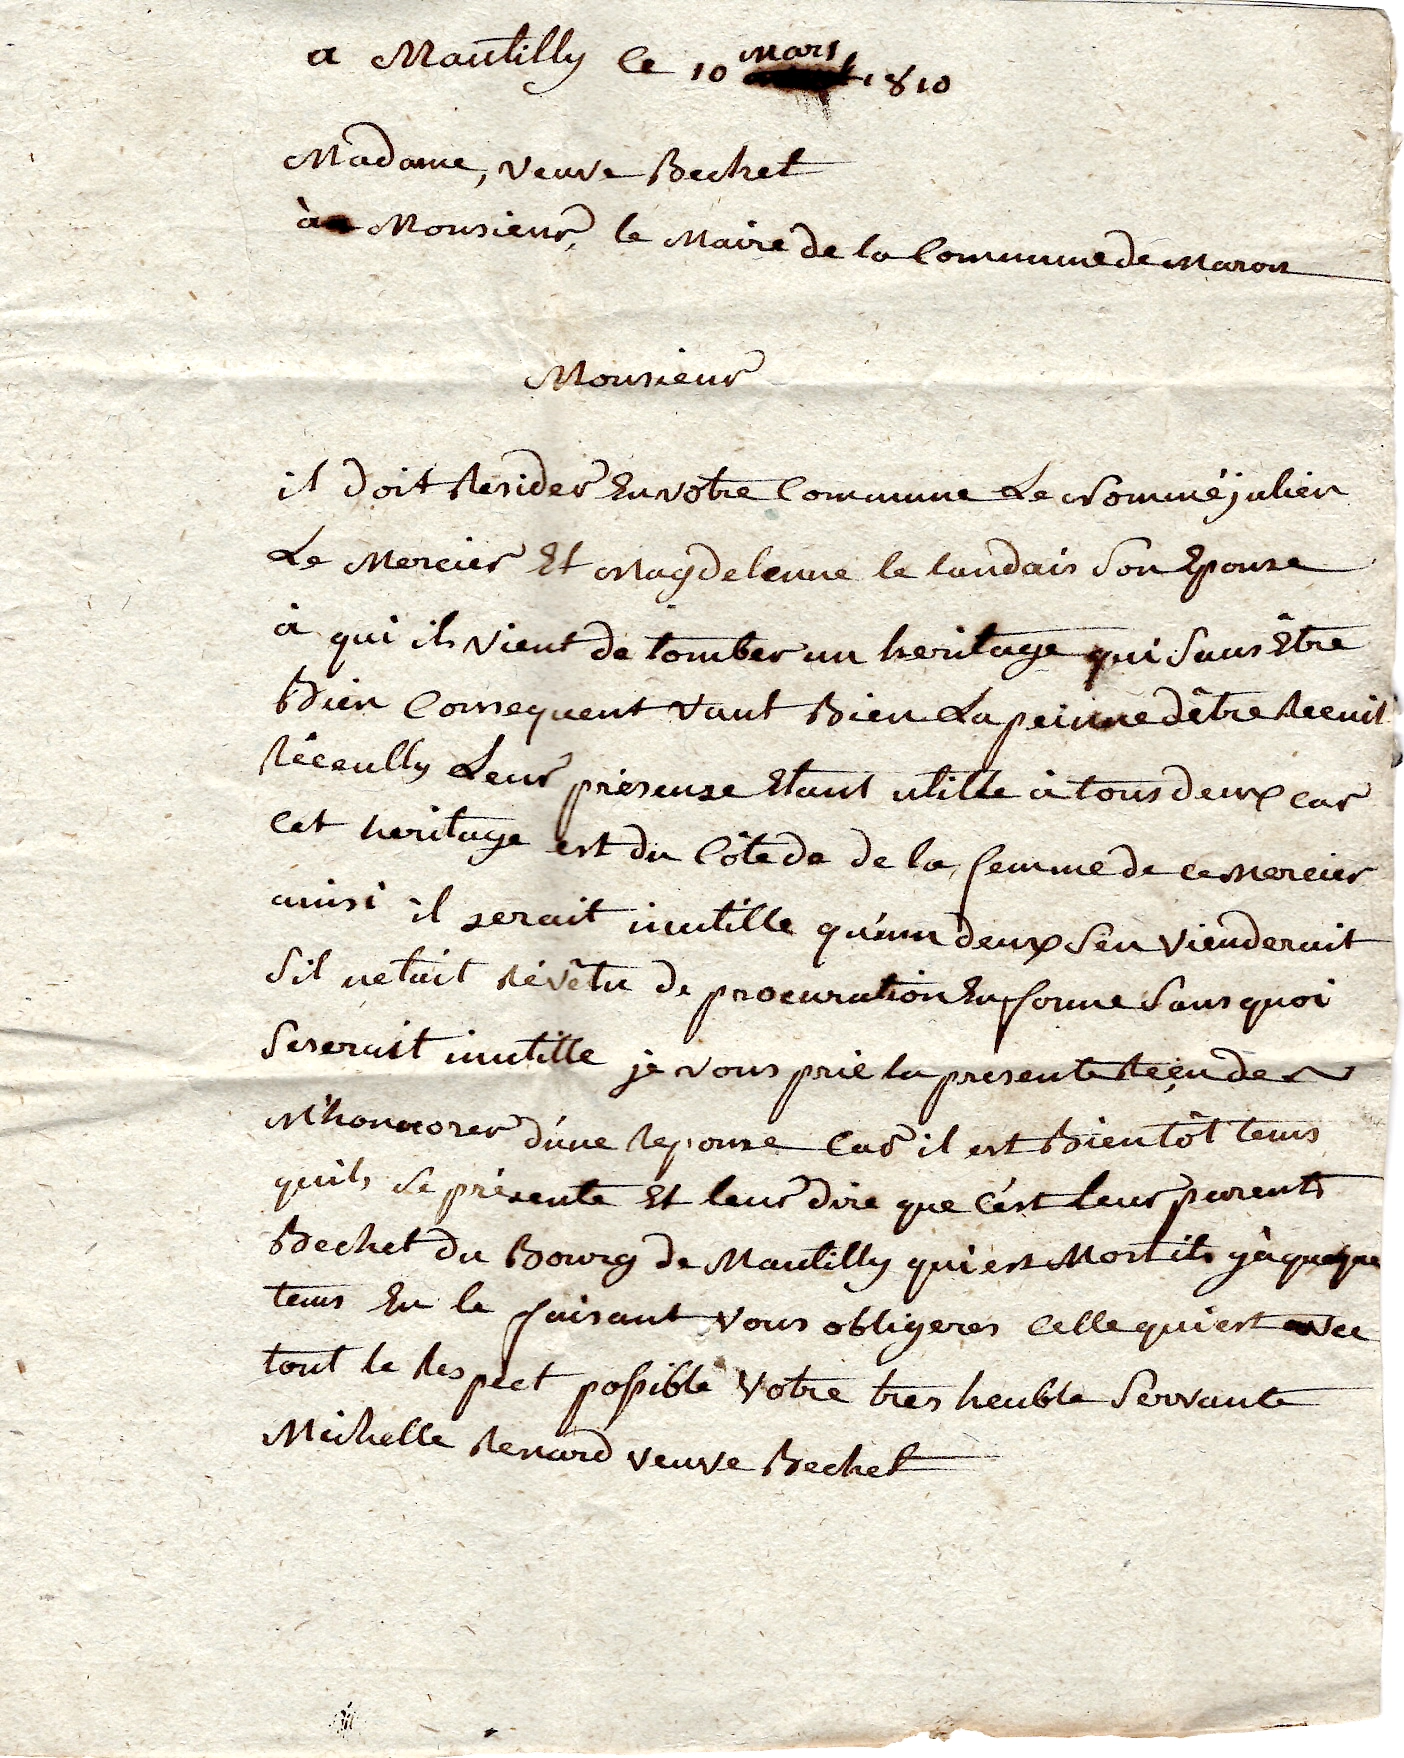 a Mantilly le 10 Mars 1810
Madame, veuve Bechet
à Monsieur, le Maire de la Commune de Maron
Monsieur
il doit Resider En votre Commune Le Nommé julien
Le Mercier Et Magdelenne le landais Son Epouse
à qui ils vient de tomber un heritage qui Sans Être
Bien Consequent vaut Bien La peinne dêtre
Réceully Leur présense Etant utille à tous deux car
cet heritage est du Côte de de la femme de ce Mercier
ainsi il serait inutille qu'un deux S'en vienderait
S'il netait Révêtu de procuration En forme Sans quoi
Sererait inutille je vous prie la presente Reçu de
M'honnorer d'une Reponse Car il est Bientôt tems
quils Se présente Et leur dire que c'est leur parents
Bechet du Bourg de Mantilly qui est Mort ils y à quelque
tems En le faisant Vous obligeres Celle qui est avec
tout le Respect possible Votre tres heuble Servante
Michelle Renard veuve Bechet